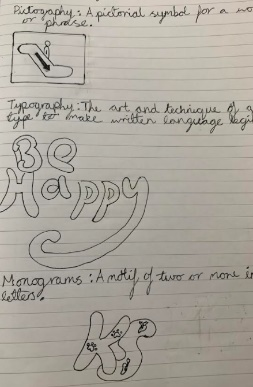 Pictography: A pictorial symbol for a
or phrase.
Typography: The art and technique of
type to make written language
Be
Happy
Monograms: A motif of two or more
letters.
KS